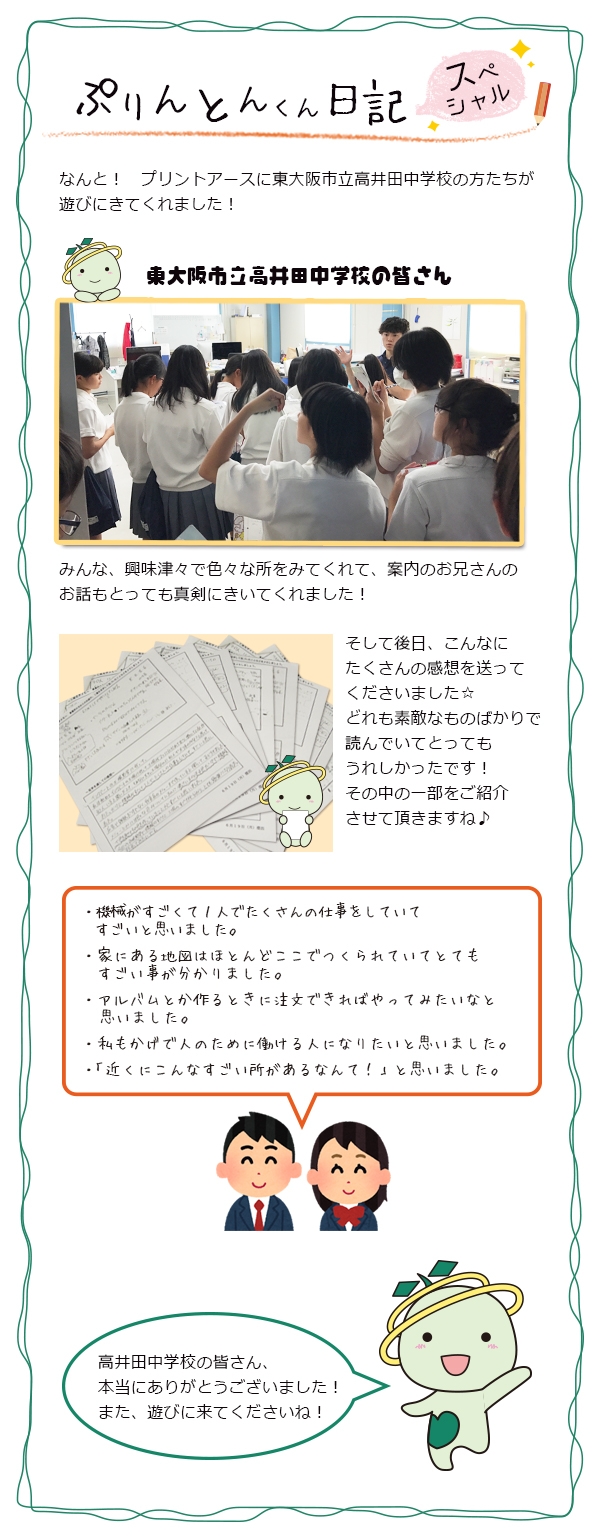 ぷりんとんくん日記
スペ
シャル
なんと！　プリントアースに東大阪市立高井田中学校の方たちが
遊びにきてくれました！
東大阪市立高井田中学校の皆さん
みんな、興味津々で色々な所をみてくれて、案内のお兄さんの
お話もとっても真剣にきいてくれました！
そして後日、こんなに
たくさんの感想を送って
くださいました☆
どれも素敵なものばかりで
読んでいてとっても
うれしかったです！
その中の一部をご紹介
させて頂きますね♪
・機械がすごくて1人でたくさんの仕事をしていて
すごいと思いました。
・家にある地図はほとんどここでつくられていてとても
すごい事が分かりました。
・アルバムとか作るときに注文できればやってみたいなと
思いました。
・私もかげで人のために働ける人になりたいと思いました。
・「近くにこんなすごい所があるなんて！」と思いました。
高井田中学校の皆さん、
本当にありがとうございました！
また、遊びに来てくださいね！